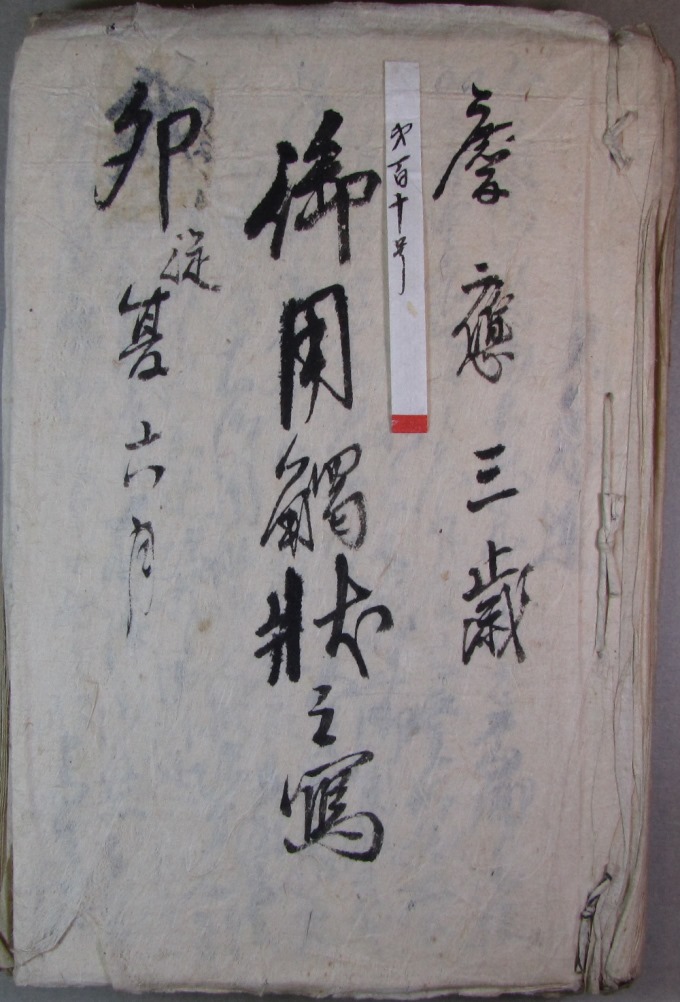 慶應三歳
第百十号
御用觸状之寫
卯従夏六月